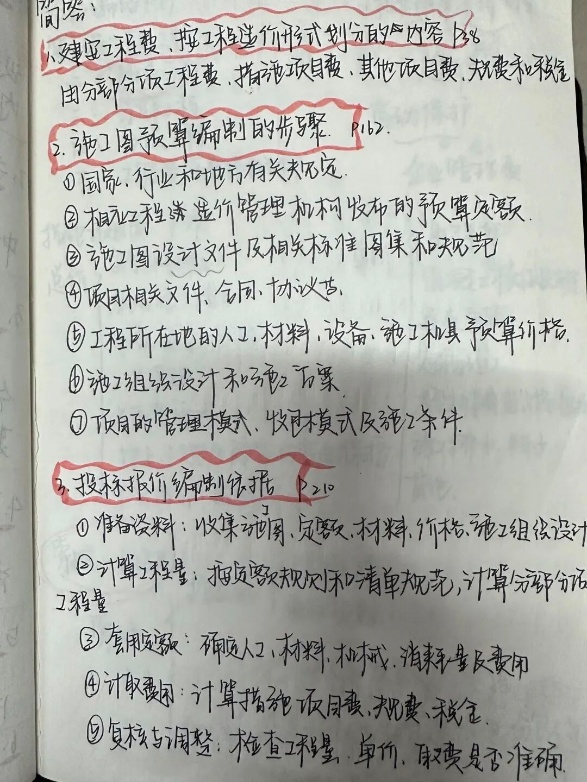 简答:
1.建安工程费、按工程造价形式划分的内容 P38
由分部分项工程费、措施项目费、其他项目费、规费和税金
2.施工图预算编制的步骤. P162.
①国家、行业和地方有关规定.
②相应工程造价管理机构发布的预算定额.
③施工图设计文件及相关标准图集和规范
④项目相关文件、合同、协议书
⑤工程所在地的人工、材料、设备、施工机具预算价格.
⑥施工组织设计和施工方案
⑦项目的管理模式、发包模式及施工条件
3.投标报价编制依据 P210
①准备资料:收集施工图、定额、材料、价格、施工组织设计
②计算工程量:按定额规则和清单规范,计算分部分项
工程量
③套用定额:确定人工、材料、机械、消耗量及费用
④计取费用:计算措施项目费、规费、税金.
⑤复核与调整:检查工程量、单价、取费是否准确